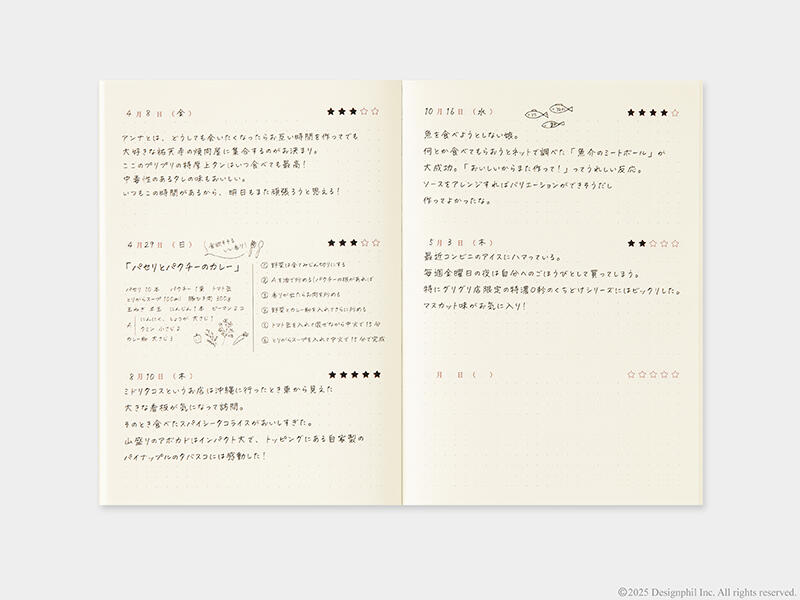 4月8日(金) ★★★☆☆
アンナとは、どうしても会いたくなったらお互い時間を作ってでも
大好きな祐天寺の焼肉屋に集合するのがお決まり。
ここのプリプリの特厚上タンはいつ食べても最高!
中毒性のあるタレの味もおいしい。
いつもこの時間があるから、明日もまた頑張ろうと思える!
4月29日(日) ★★★☆☆
食欲をそそる
いい香り!
「パセリとパクチーのカレー」
パセリ 10本 パクチー 1束 トマト缶
とりがらスープ 100ml 豚ひき肉 300g
玉ねぎ 2玉 にんじん 1本 ピーマン 2コ
A にんにく、しょうが 大さじ1
クミン 小さじ2
カレー粉 大さじ3
① 野菜は全てみじん切りにする
② Aを油で炒める(パクチーの根があれば
③ 香りが出たらお肉を炒める
④ 野菜とカレー粉を入れてさらに炒める
⑤ トマト缶を入れて混ぜながら中火で15分
⑥ とりがらスープを入れて中火で15分で完成
8月10日(木) ★★★★★
ミドリタコスというお店は沖縄に行ったとき車から見えた
大きな看板が気になって訪問。
そのとき食べたスパイシータコライスがおいしすぎた。
山盛りのアボカドはインパクト大で、トッピングにある自家製の
パイナップルのタバスコには感動した!
10月16日(水) ★★★★☆
魚を食べようとしない娘。
何とか食べてもらおうとネットで調べた「魚介のミートボール」が
大成功。「おいしいからまた作って!」ってうれしい反応。
ソースをアレンジすればバリエーションができそうだし
作ってよかったな。
5月3日(木) ★★☆☆☆
最近コンビニのアイスにハマっている。
毎週金曜日の夜は自分へのごほうびとして買ってしまう。
特にグリグリ店限定の特濃0秒のくちどけシリーズにはビックリした。
マスカット味がお気に入り!
月 日( ) ☆☆☆☆☆
©2025 Designphil Inc. All rights reserved.